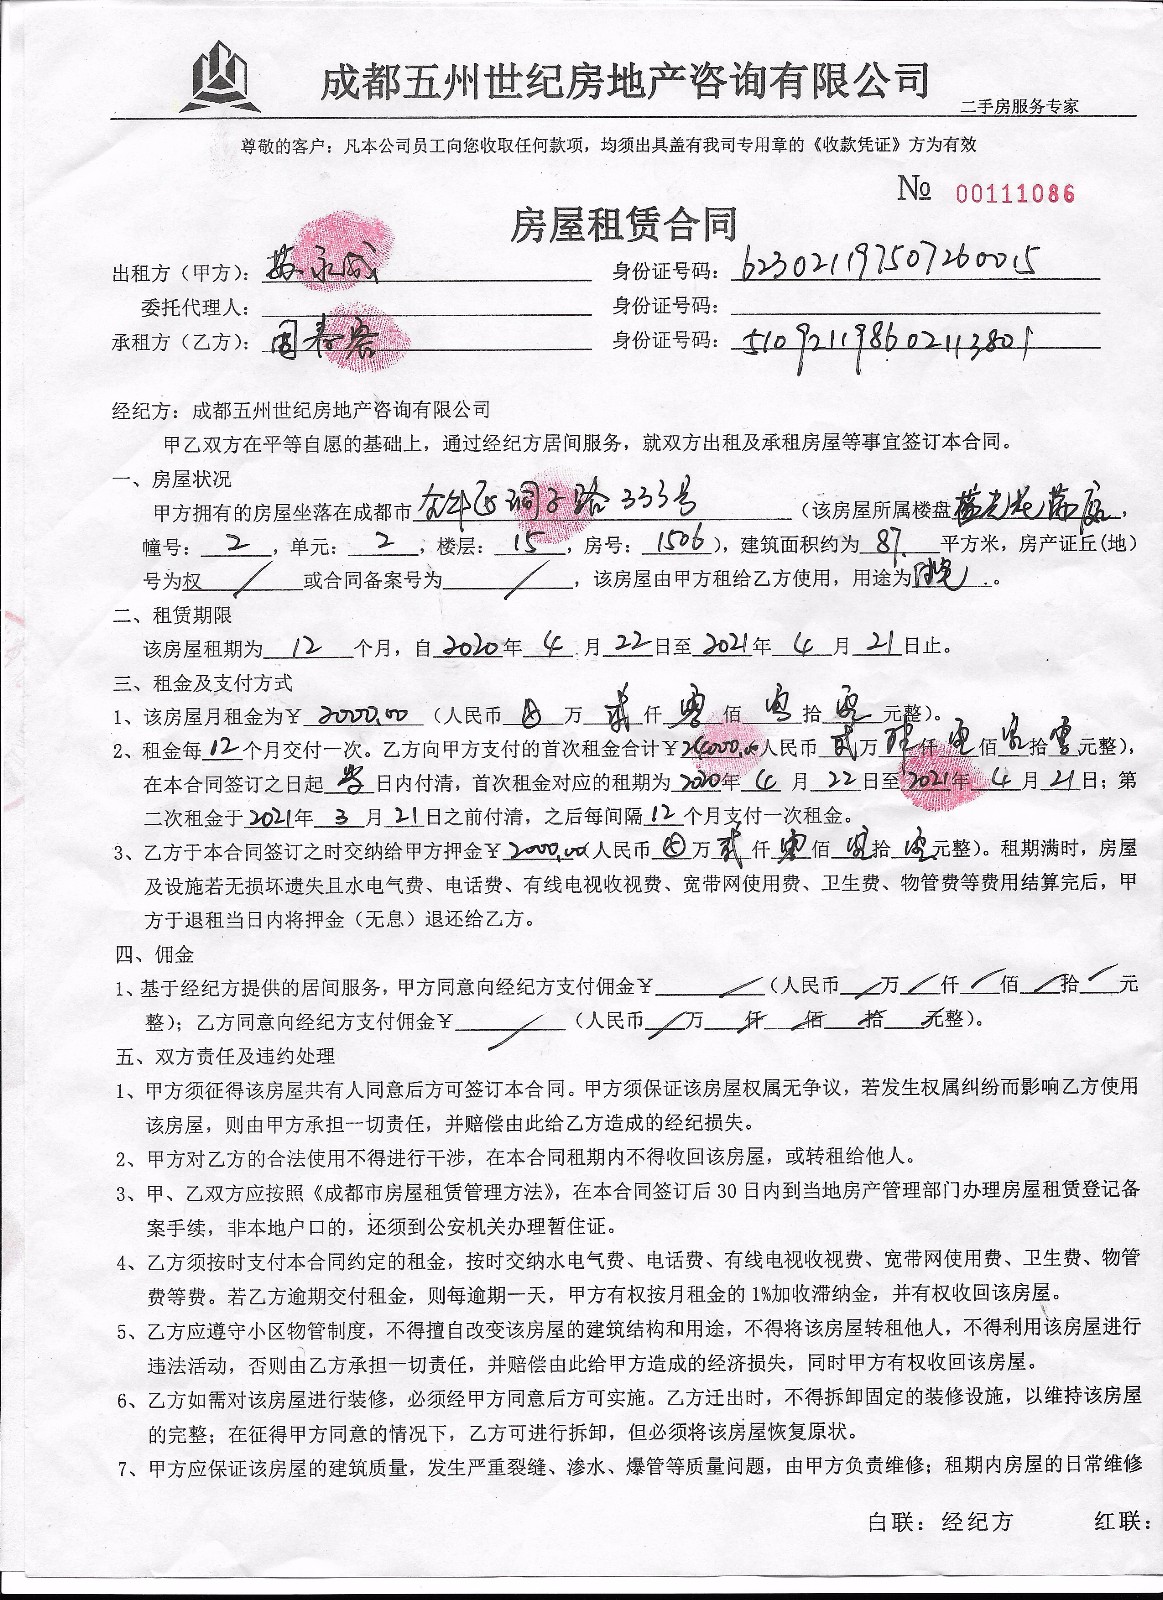 成都五州世纪房地产咨询有限公司
二手房服务专家
尊敬的客户：凡本公司员工向您收取任何款项，均须出具盖有我司专用章的《收款凭证》方为有效
№ 00111086
房屋租赁合同
出租方（甲方）：苏永成 身份证号码：623021197507260015
委托代理人： 身份证号码：
承租方（乙方）：周春容 身份证号码：510921198602113801
经纪方：成都五州世纪房地产咨询有限公司
甲乙双方在平等自愿的基础上，通过经纪方居间服务，就双方出租及承租房屋等事宜签订本合同。
一、房屋状况
甲方拥有的房屋坐落在成都市金牛区洞子路333号（该房屋所属楼盘蓝光花满庭，
幢号：2，单元：2，楼层：15，房号：1506），建筑面积约为87平方米，房产证丘(地)
号为权 / 或合同备案号为 / ，该房屋由甲方租给乙方使用，用途为住宅。
二、租赁期限
该房屋租期为12个月，自2020年4月22日至2021年4月21日止。
三、租金及支付方式
1、该房屋月租金为￥2000.00（人民币⊗万贰仟零佰零拾零元整）。
2、租金每12个月交付一次。乙方向甲方支付的首次租金合计￥24000.00人民币贰万肆仟零佰零拾零元整），
在本合同签订之日起当日内付清，首次租金对应的租期为2020年4月22日至2021年4月21日；第
二次租金于2021年3月21日之前付清，之后每间隔12个月支付一次租金。
3、乙方于本合同签订之时交纳给甲方押金￥2000.00(人民币⊗万贰仟零佰零拾零元整）。租期满时，房屋
及设施若无损坏遗失且水电气费、电话费、有线电视收视费、宽带网使用费、卫生费、物管费等费用结算完后，甲
方于退租当日内将押金（无息）退还给乙方。
四、佣金
1、基于经纪方提供的居间服务，甲方同意向经纪方支付佣金￥ / （人民币 / 万 / 仟 / 佰 / 拾 / 元
整）；乙方同意向经纪方支付佣金￥ / （人民币 / 万 仟 佰 拾 元整）。
五、双方责任及违约处理
1、甲方须征得该房屋共有人同意后方可签订本合同。甲方须保证该房屋权属无争议，若发生权属纠纷而影响乙方使用
该房屋，则由甲方承担一切责任，并赔偿由此给乙方造成的经纪损失。
2、甲方对乙方的合法使用不得进行干涉，在本合同租期内不得收回该房屋，或转租给他人。
3、甲、乙双方应按照《成都市房屋租赁管理方法》，在本合同签订后30日内到当地房产管理部门办理房屋租赁登记备
案手续，非本地户口的，还须到公安机关办理暂住证。
4、乙方须按时支付本合同约定的租金，按时交纳水电气费、电话费、有线电视收视费、宽带网使用费、卫生费、物管
费等费。若乙方逾期交付租金，则每逾期一天，甲方有权按月租金的1%加收滞纳金，并有权收回该房屋。
5、乙方应遵守小区物管制度，不得擅自改变该房屋的建筑结构和用途，不得将该房屋转租他人，不得利用该房屋进行
违法活动，否则由乙方承担一切责任，并赔偿由此给甲方造成的经济损失，同时甲方有权收回该房屋。
6、乙方如需对该房屋进行装修，必须经甲方同意后方可实施。乙方迁出时，不得拆卸固定的装修设施，以维持该房屋
的完整；在征得甲方同意的情况下，乙方可进行拆卸，但必须将该房屋恢复原状。
7、甲方应保证该房屋的建筑质量，发生严重裂缝、渗水、爆管等质量问题，由甲方负责维修；租期内房屋的日常维修
白联：经纪方 红联：